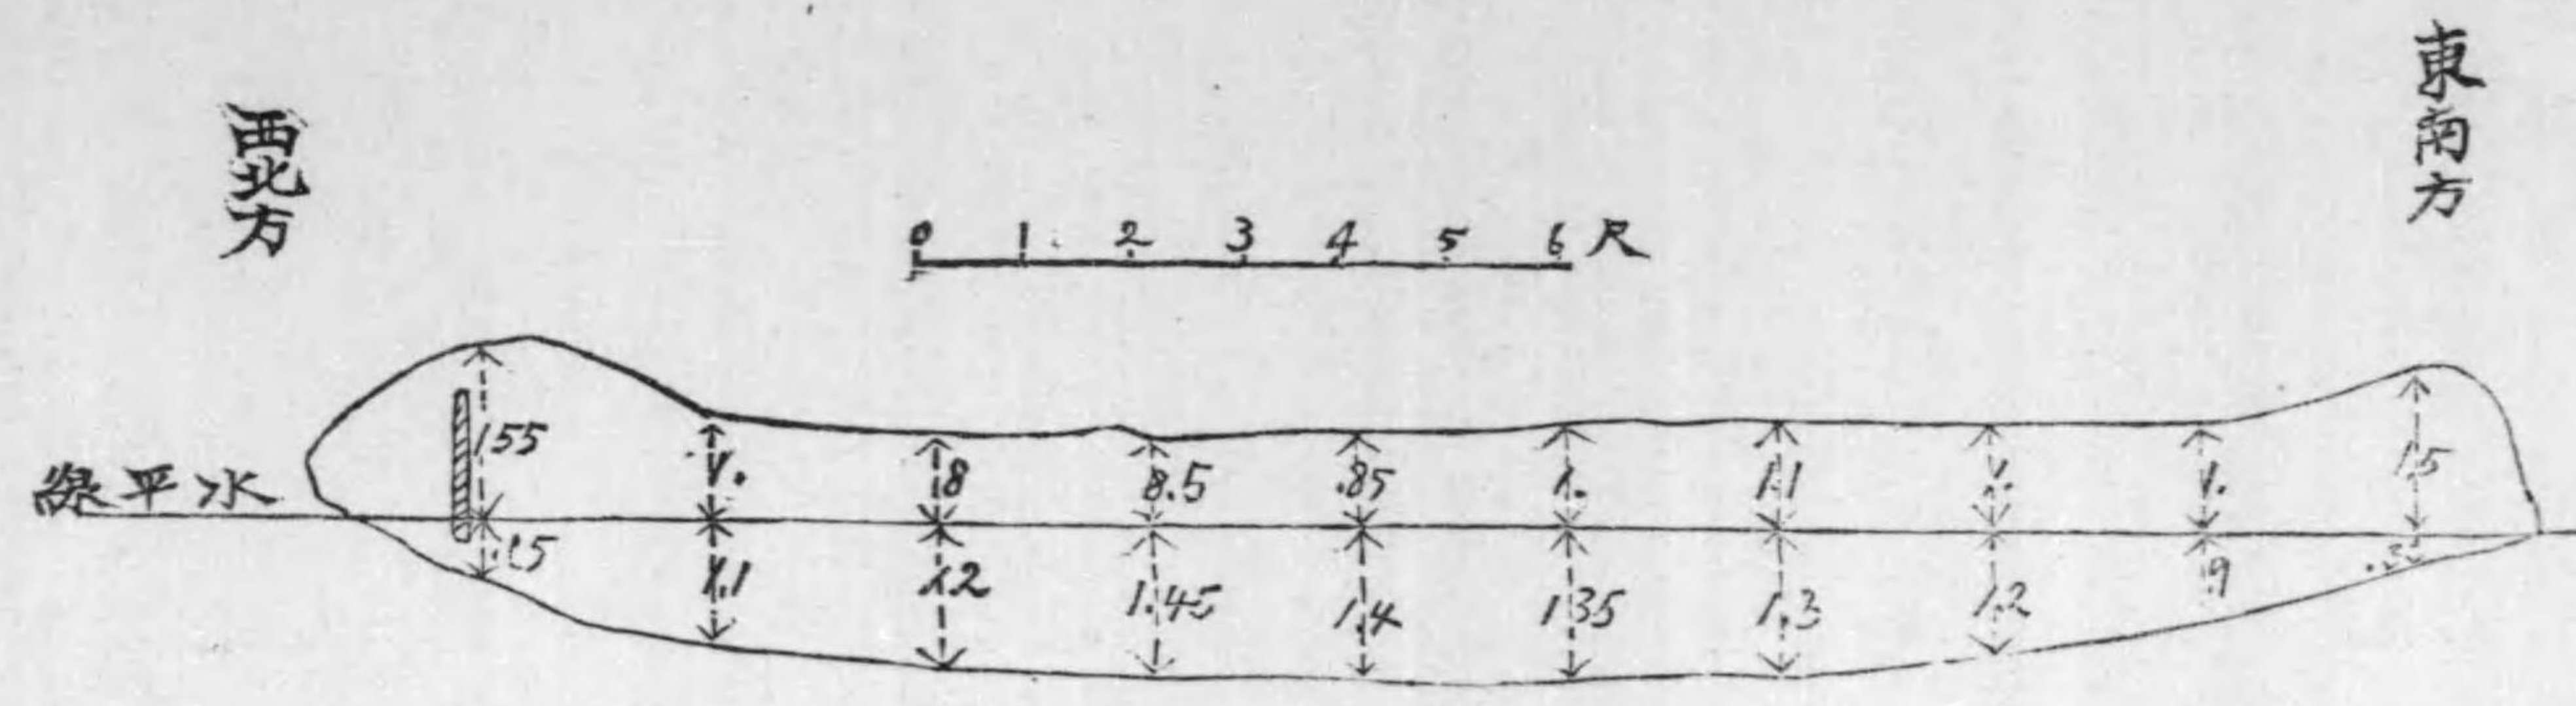 東南方
西北方
0 1 2 3 4 5 6 尺
155 1. .8 8.5 .85 1. 1.1 1. 1. 1.5
線平水
1.1 1.2 1.45 1.4 1.35 1.3 1.2 .9 .3